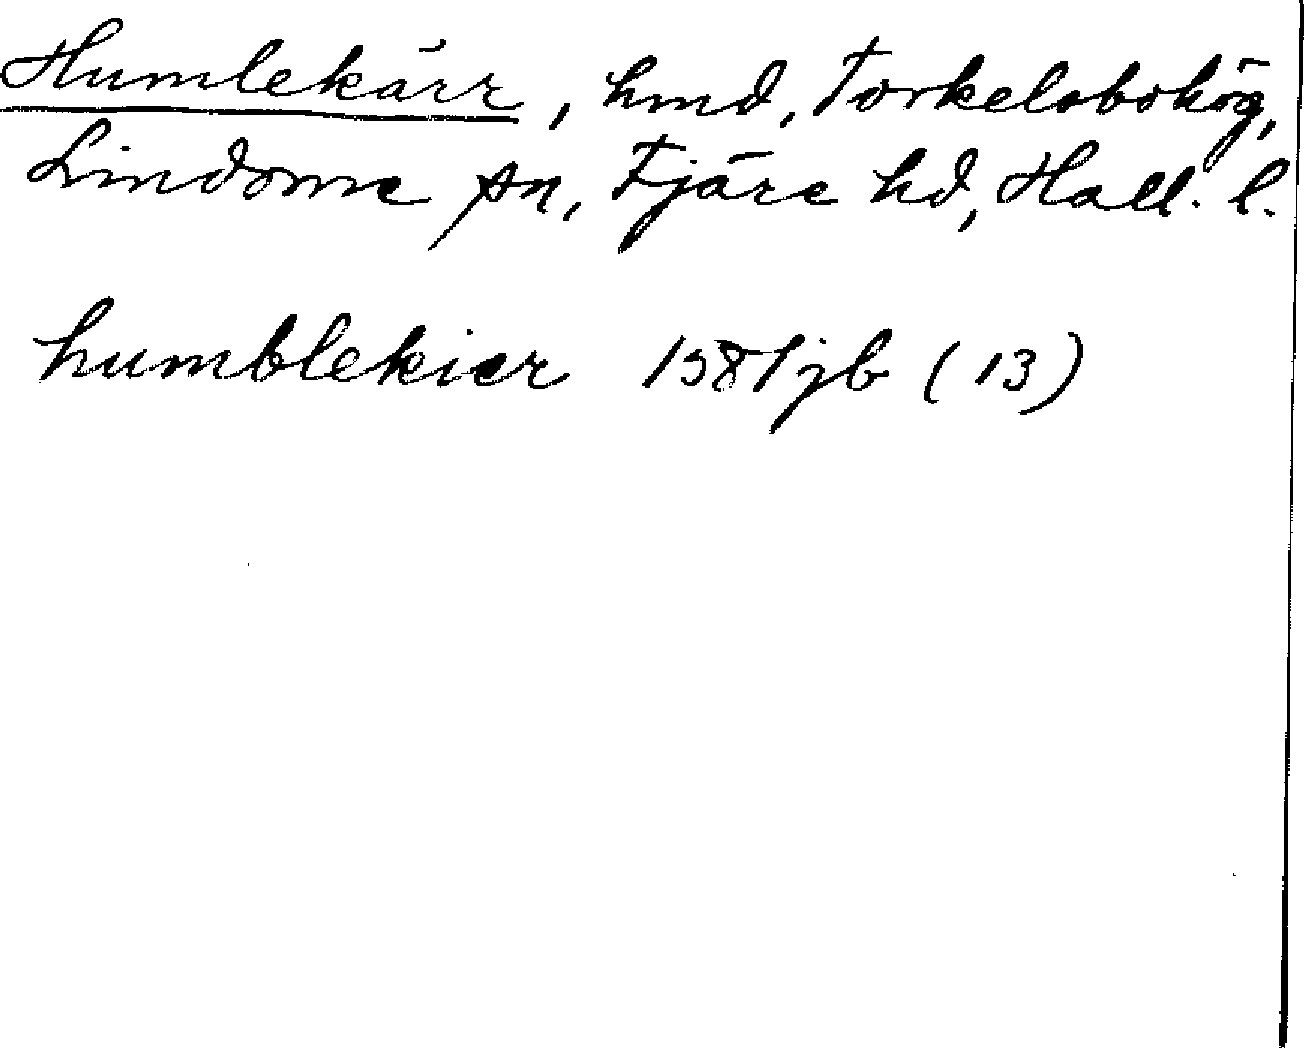 Humlekärr, hmd, Torkelsbohög,
Lindome sn, Fjäre hd, Hall. l.
humblekier 1581 jb (13)